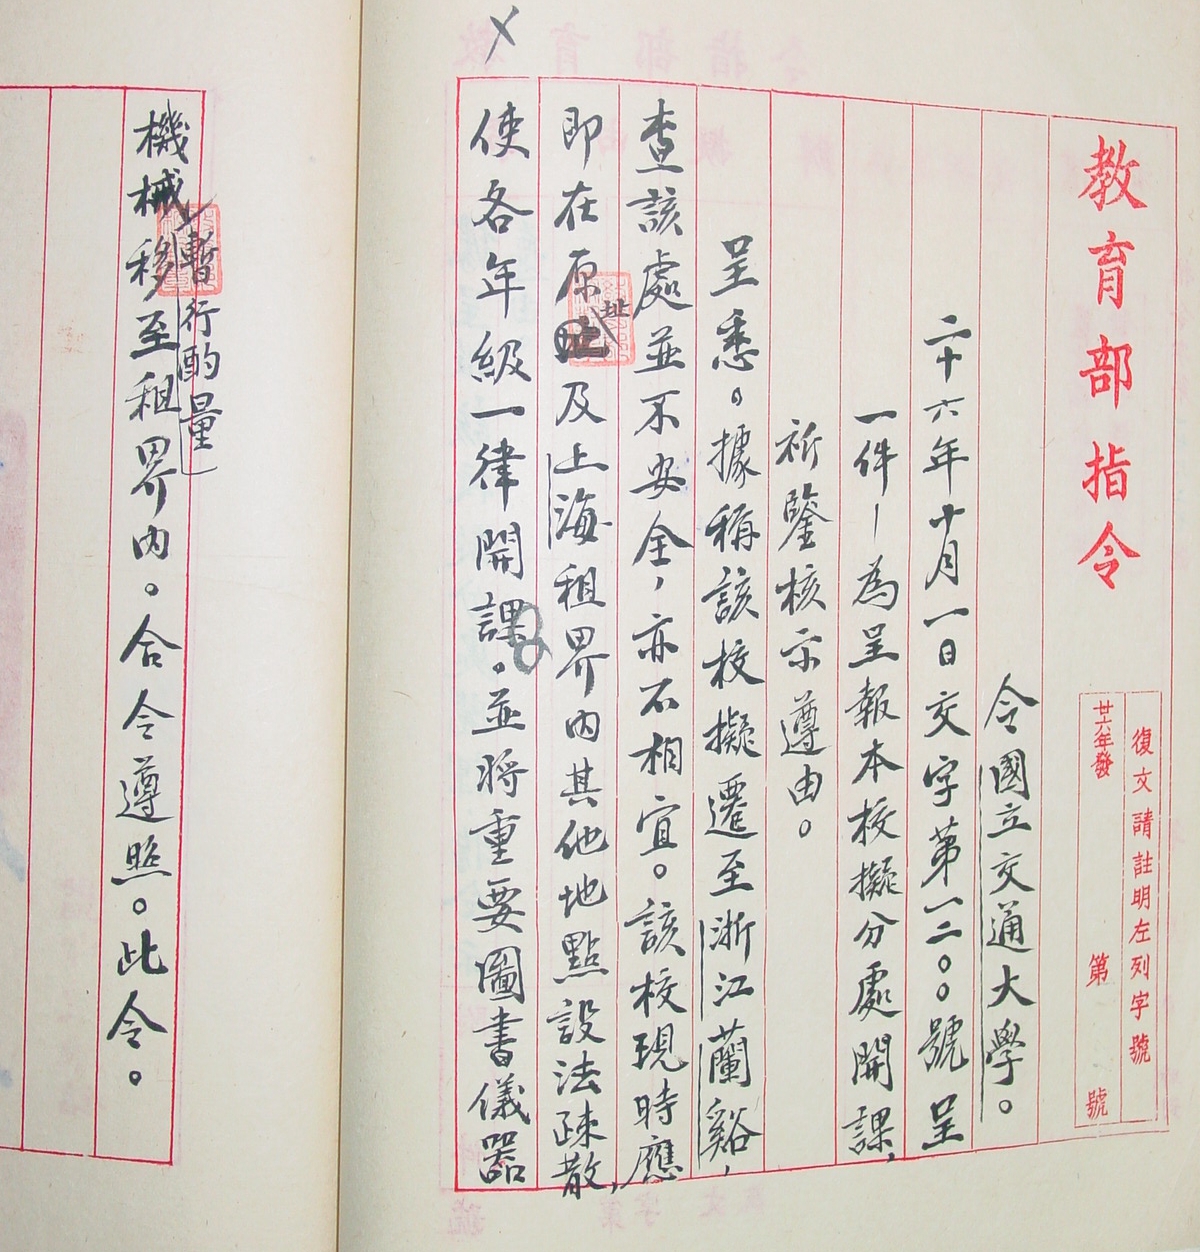 教育部指令
復文請註明左列字號
廿六年發 第 號
令國立交通大學。
二十六年十月一日交字第一二〇〇號呈
一件—為呈報本校擬分處開課，
祈鑒核示遵由。
呈悉。據稱該校擬遷至浙江蘭谿，
查該處並不安全，亦不相宜。該校現時應
即在原址及上海租界內其他地點設法疎散，
使各年級一律開課。並將重要圖書儀器
機械，暫行酌量移至租界內。合令遵照。此令。